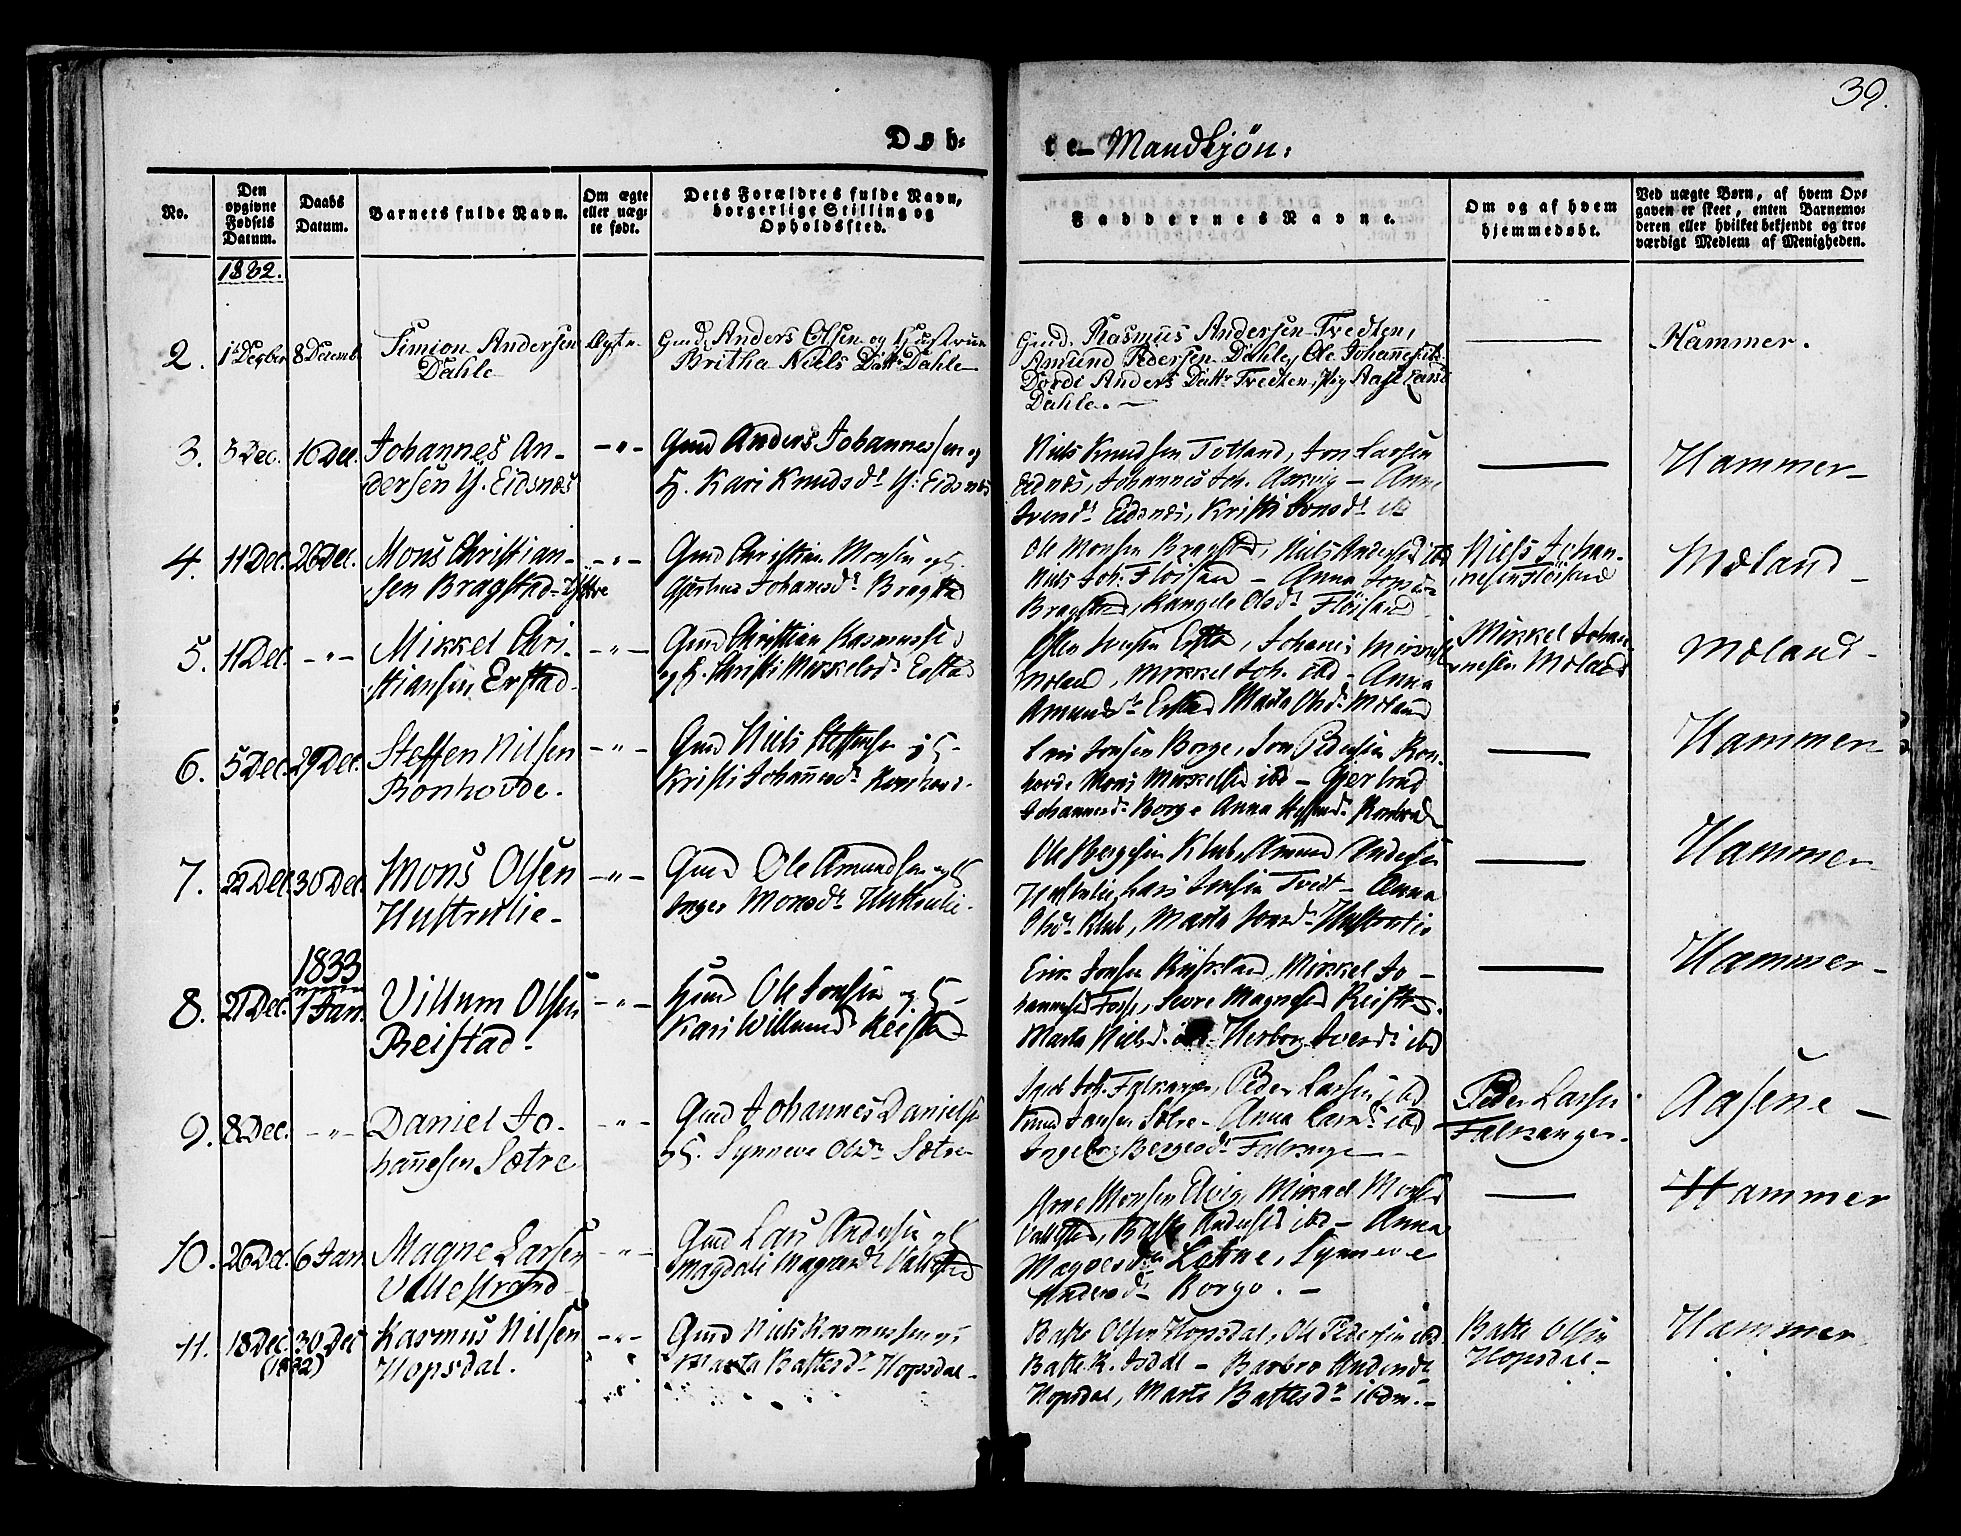 39.
Døb-
te Mandkjøn:
No.
Den opgivne Fødsels Datum.
Daabs Datum.
Barnets fulde Navn.
Om ægte eller uæg-te født.
Dets Forældres fulde Navn, borgerlige Stilling og Opholdssted.
Faddernes Navne.
Om og af hvem hjemmedøbt.
Ved uægte Børn, af hvem Op-gaven er skeet, enten Barnemo-deren eller hvilket bekjendt og tro-værdigt Medlem af Menigheden.
1832.
2. 8 Decemb
Simion Andersen
Dahle
Ægte
Gmd. Anders Olsen og Hustrue
Britha Niels Datr Dahle
Gmd. Rasmus Andersen Tvedten,
Amund Pedersen Dahle, Ole
Dordi Anders Dattr Tvedten, Pig
Dahle.
Hammer.
3. 3 Dec. 16 Dec.
Johannes An-
dersen Y. Eidsnes
-"-
Gmd Anders Johannessen og
H. Kari Knudsdr Y: Eidsnes
Niels Knudsen Totland, Jon Larsen
Eidnes, Johannes Joh. - Anne
Eidsnes, Kristi Jonsdr ibd
Hammer-
4. 11 Dec. 26 Dec.
Mons Christian-
sen Bragstad-Ystre
-"-
Gmd Christian Monsen og H.
Johanesdr Bragstad
Ole Monsen Bragstad, Niels Andersen ibd
Niels Joh. Fløisand - Anna
Bragstad, Rangele Olsdr Fløisand
Niels Johan-
nesen Fløisand
Mæland-
5. 11 Dec. -"-
Mikkel Chri-
stiansen Erstad
-"-
Gmd Christian Rasmussen
og H. Kristi Mikkelsdr Erstad
Mæland, Mikkel Joh. ibd - Anna
Amundsdr Erstad Marta Olsdr Mæland
Mikkel Johan-
nesen Mæland
Mæland-
6. 5 Dec. 29 Dec.
Steffen Nilsen
Ronhovde.
-"-
Gmd Niels Steffensen og H-
Kristi Johannesdr Ronhovd.
Lars Jonsen Borge, Jon Pedersen Ron-
hovde Mons Mikkelsen ibd - Gjertrud
Johannesdr Borge Anna Steffensdr Ronhovde
Hammer-
7. 22 Dec. 30 Dec.
Mons Olsen
Hustrulie-
-"-
Gmd Ole Amundsen og H
Inger Monsdr Hustrulie.
Ole Klub, Amund Andersen
Hustrulie, Lars Jonsen Tvedt - Anna
Olsdr Klub, Marta Jonsdr Hustrulie
Hammer-
1833
8. 21 Dec. 1 Jan.
Villum Olsen
Reistad-
-"-
Gmd Ole Jonsen og H-
Kari Willumsdr Reistad
Erik Jonsen, Mikkel Jo-
hannesen Fosse, Magnesen Reistad.
Marta Nielsd. Herborg Iversdr ibd
Hammer-
9. 8 Dec. -"-
Daniel Jo-
hannesen Sætre
-"-
Gmd Johannes Danielsen
og H. Synneve Olsdr Sætre
Joh. Falkanger, Peder Larsen ibd
Knud Jansen Sætre - Anna Larsdr ibd
Ingeborg Bergesdr Falkanger-
Peder Larsen
Falkanger.
Aasene-
10. 26 Dec. 6 Jan.
Magne Larsen
Vallestrand-
-"-
Gmd Lars Andersen og H
Magdali Magnesdr
Arne Monsen Elvig, Mikael Monsen
Batte Andersen ibd - Anna
Magnesdr Lothe, Synneve
Andersdr Borgo. -
Hammer
11. 18 Dec. 30 Dec
(1832)
Rasmus Nilsen
Hopsdal.
-"-
Gmd Niels Rasmussen og
Marta Battesdr Hopsdal-
Batte Olsen Hopsdal, Ole Pedersen ibd.
Batte R. Isdal - Barbro Andersdr
Hopsdal, Marte Battesdr ibdm.-
Batte Olsen
Hopsdal-
Hammer